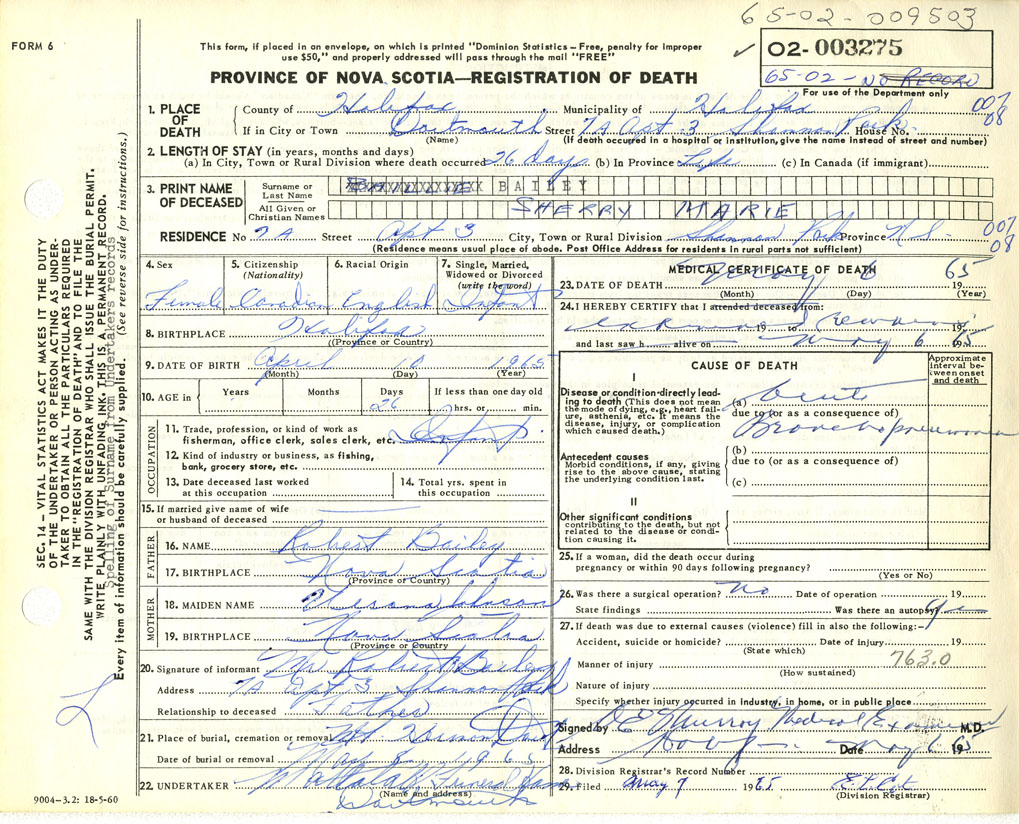 65-02-009503
FORM 6
This form, if placed in an envelope, on which is printed "Dominion Statistics – Free, penalty for improper
use $50," and properly addressed will pass through the mail "FREE"
✓ 02-003275
65-02-NO RECORD
For use of the Department only
PROVINCE OF NOVA SCOTIA—REGISTRATION OF DEATH
1. PLACE OF DEATH County of Halifax Municipality of Halifax 007 08
If in City or Town Dartmouth Street 7A Apt 3 Shannon Park House No.
(Name) (If death occurred in a hospital or institution, give the name instead of street and number)
2. LENGTH OF STAY (in years, months and days)
(a) In City, Town or Rural Division where death occurred 26 Days (b) In Province Life (c) In Canada (if immigrant)
3. PRINT NAME OF DECEASED Surname or Last Name BAILEY
All Given or Christian Names SHERRY MARIE
RESIDENCE No 7A Street Apt 3 City, Town or Rural Division Shannon Park Province N.S. 007 08
(Residence means usual place of abode. Post Office Address for residents in rural parts not sufficient)
4. Sex Female
5. Citizenship (Nationality) Canadian
6. Racial Origin English
7. Single, Married, Widowed or Divorced (write the word) Infant
8. BIRTHPLACE Halifax
(Province or Country)
9. DATE OF BIRTH April 10 1965
(Month) (Day) (Year)
10. AGE in Years Months Days 26 If less than one day old hrs. or min.
OCCUPATION
11. Trade, profession, or kind of work as
fisherman, office clerk, sales clerk, etc. Infant
12. Kind of industry or business, as fishing,
bank, grocery store, etc.
13. Date deceased last worked
at this occupation
14. Total yrs. spent in
this occupation
15. If married give name of wife
or husband of deceased
FATHER
16. NAME Robert Bailey
17. BIRTHPLACE Nova Scotia
(Province or Country)
MOTHER
18. MAIDEN NAME
19. BIRTHPLACE Nova Scotia
(Province or Country)
20. Signature of informant Mr Robert Bailey
Address 7A Apt 3 Shannon Park
Relationship to deceased Father
21. Place of burial, cremation or removal Mt Hermon Dart
Date of burial or removal May 8 1965
22. UNDERTAKER Funeral Home
(Name and address)
Dartmouth
9004-3.2: 18-5-60
MEDICAL CERTIFICATE OF DEATH
23. DATE OF DEATH May 6 19 65
(Month) (Day) (Year)
24. I HEREBY CERTIFY that I attended deceased from:
19 to 19
and last saw h alive on May 6 1965
CAUSE OF DEATH
Approximate interval between onset and death
I
Disease or condition directly leading to death (This does not mean the mode of dying, e.g., heart failure, asthenia, etc. It means the disease, injury, or complication which caused death.)
(a) Acute
due to (or as a consequence of)
Bronchopneumonia
Antecedent causes
Morbid conditions, if any, giving rise to the above cause, stating the underlying condition last.
(b)
due to (or as a consequence of)
(c)
II
Other significant conditions
contributing to the death, but not related to the disease or condition causing it.
25. If a woman, did the death occur during
pregnancy or within 90 days following pregnancy?
(Yes or No)
26. Was there a surgical operation? No Date of operation 19
State findings Was there an autopsy? Yes
27. If death was due to external causes (violence) fill in also the following:–
Accident, suicide or homicide? Date of injury 19
(State which)
Manner of injury 763.0
(How sustained)
Nature of injury
Specify whether injury occurred in industry, in home, or in public place
Signed by Murray Medical M.D.
Address Date May 6 1965
28. Division Registrar's Record Number
29. Filed May 7 1965
(Division Registrar)
SEC. 14 – VITAL STATISTICS ACT MAKES IT THE DUTY
OF THE UNDERTAKER OR PERSON ACTING AS UNDER-
TAKER TO OBTAIN ALL THE PARTICULARS REQUIRED
IN THE "REGISTRATION OF DEATH" AND TO FILE THE
SAME WITH THE DIVISION REGISTRAR WHO SHALL ISSUE THE BURIAL PERMIT.
WRITE PLAINLY WITH UNFADING INK. THIS IS A PERMANENT RECORD.
Spelling of Surname from Undertakers records
Every item of information should be carefully supplied. (See reverse side for instructions.)